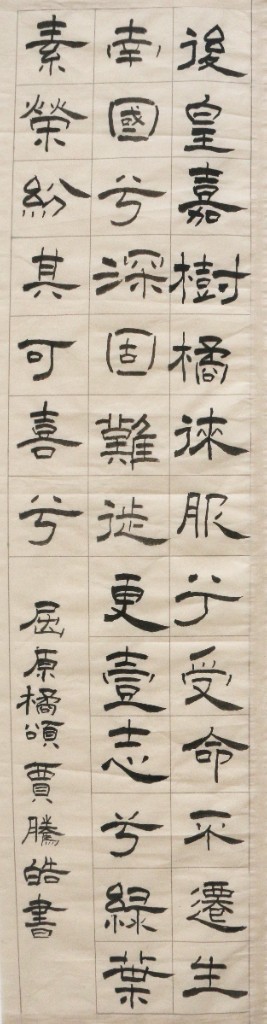 後皇嘉樹橘徠服兮受命不遷生
南國兮深固難徙更壹志兮綠葉
素榮紛其可喜兮
屈原橘頌賈騰皓書